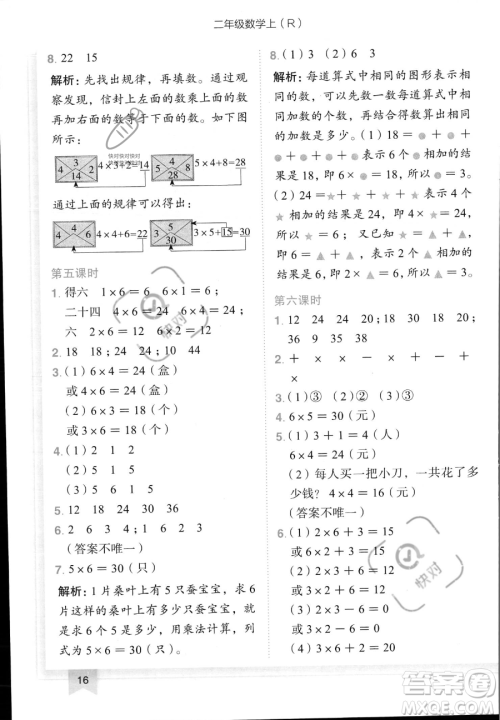 二年级数学上(R)
8. 22 15
解析:先找出规律,再填数。通过观
察发现,信封上左面的数乘右面的数
再加右面的数等于下面的数。如下图
所示:
3
4 2
14
4×3+2=14
4
5 8
28
5×4+8=28
通过上面的规律可以得出:
4
4 6
22
4×4+6=22
5
3 15
30
3×5+15=30
第五课时
1. 得六 1×6=6 六
二十四 4×6=24 四
六 2×6=12 六
2. 18 18;24 24;6 6
3. (1)6×4=24(盒)
或4×6=24(盒)
(2)6×3=18(个)
或3×6=18(个)
4. (1)5 1 2
(2)2 1 5
5. 12 18 24 30 36
6. 2 6 3 4 1 6
(答案不唯一)
7. 5×6=30(只)
解析:1片桑叶上有5只蚕宝宝,求6
片这样的桑叶上有多少只蚕宝宝,就
是求6个5相加的和是多少,5和6
相乘,用乘法计算,列式计算为
5×6=30(只)。
16
8. (1)(1)3 (2)6
解析:每道算式中相同的图形表示相
同的数,先数一数每道算式中有几个
相同的加数,然后结合得数算出相同
加数的和是多少。(1)18=●+●+
●+●+●+●表示6个●相加的结
果是18,即6×●=18,所以●=3。
(2)24=★+★+★+★表示4个★
相加的结果是24,即4×★=24,所以
★=6。★=6=▲+▲+▲+▲+
▲+▲,6个▲相加的和是6,即6×
▲=6,所以▲=1。
第六课时
1. 12 24 20 16
6 9 36 30
2. + + × - + - ×
×(答案不唯一)
3. (1)③ (2)② (3)①
4. 6×5=30(元)
5. (1)3+1=4(人)
6×4=24(元)
(2)每人买一把小刀,一共花了多
少钱? 4×4=16(元)
(答案不唯一)
6. (1)2×6+3=15
或3×6-3=15
(2)3×6-1=17
或2×6+5=17
(3)2×6+1=13
或3×6-5=13
快对
快对
答案圈